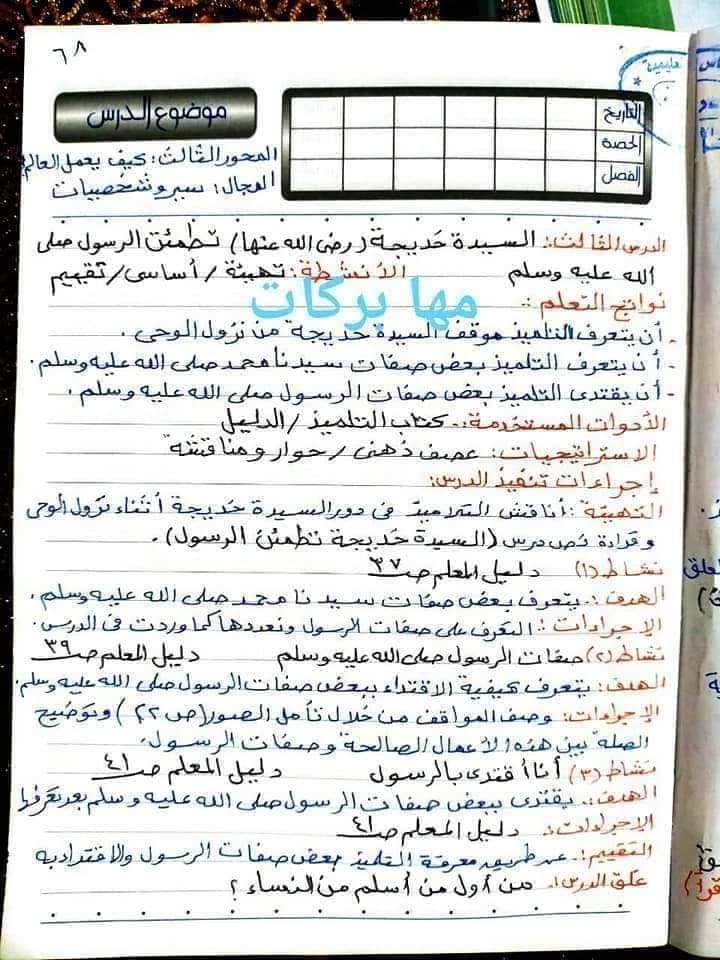 ٦٨
تعليمية
التاريخ
الحصة
الفصل
موضوع الدرس
المحور الثالث: كيف يعمل العالم
المجال: سير وشخصيات
الدرس الثالث: السيدة خديجة (رضى الله عنها) تطمئن الرسول صلى
الله عليه وسلم الأنشطة: تهيئة / أساسى / تقييم
مها بركات
نواتج التعلم :
- أن يتعرف التلميذ موقف السيدة خديجة من نزول الوحى .
- أن يتعرف التلميذ بعض صفات سيدنا محمد صلى الله عليه وسلم .
- أن يقتدى التلميذ بعض صفات الرسول صلى الله عليه وسلم .
الأدوات المستخدمة: كتاب التلميذ / الدليل
الاستراتيجيات: عصف ذهنى / حوار ومناقشة
إجراءات تنفيذ الدرس:
التهيئة: أناقش التلاميذ فى دور السيدة خديجة أثناء نزول الوحى
وقراءة نص درس (السيدة خديجة تطمئن الرسول).
نشاط (١) دليل المعلم صـ ٣٧
الهدف: يتعرف بعض صفات سيدنا محمد صلى الله عليه وسلم .
الإجراءات: التعرف على صفات الرسول ونعددها كما وردت فى الدرس .
نشاط (٢) صفات الرسول صلى الله عليه وسلم دليل المعلم صـ ٣٩
الهدف: يتعرف كيفية الاقتداء ببعض صفات الرسول صلى الله عليه وسلم.
الإجراءات: وصف المواقف من خلال تأمل الصور (ص ٢٢) وتوضيح
الصلة بين هذه الأعمال الصالحة وصفات الرسول.
نشاط (٣) أنا أقتدى بالرسول دليل المعلم صـ ٤١
الهدف: يقتدى ببعض صفات الرسول صلى الله عليه وسلم بعد تعرفها
الإجراءات: دليل المعلم صـ ٤١
التقييم: عن طريق معرفة التلميذ بعض صفات الرسول والاقتداء به
غلق الدرس: من أول من أسلم من النساء ؟